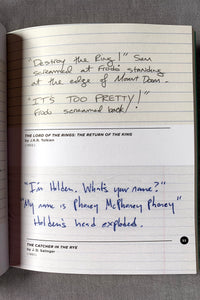 "Destroy the Ring!" Sam
screamed at Frodo standing
at the edge of Mount Doom.
"IT'S TOO PRETTY!"
Frodo screamed back!
THE LORD OF THE RINGS: THE RETURN OF THE KING
by J.R.R. Tolkien
"I'm Holden. What's your name?"
"My name is Phoney McPhoney Phoney"
Holden's head exploded.
THE CATCHER IN THE RYE
by J.D. Salinger